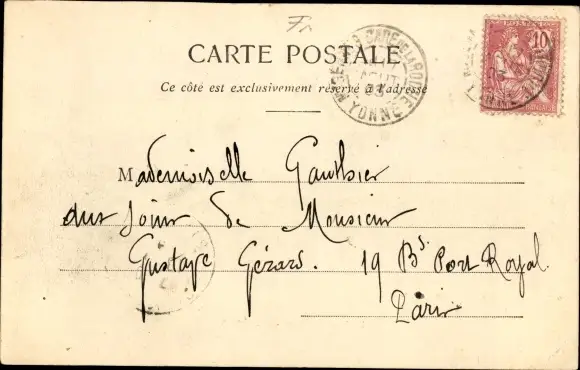 Fr
CARTE POSTALE
Ce côté est exclusivement réservé à l'adresse
GARE DE LAROCHE
AOUT
03
YONNE
POSTES
10
Mademoiselle Gauthier
aux soins de Monsieur
Gustave Gérard. 19 Bd. Port Royal
Paris